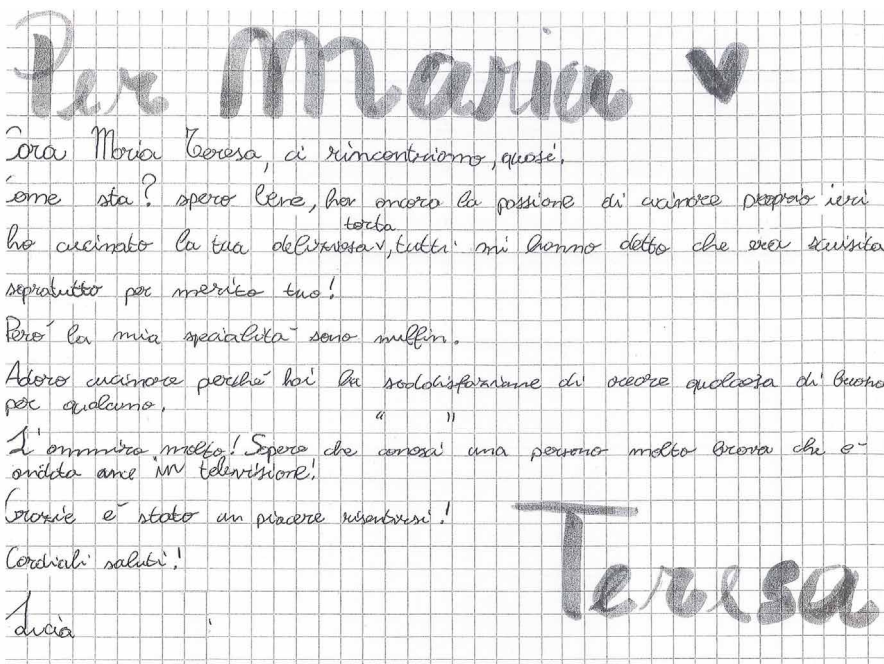 Per Maria ♥
Cara Maria Teresa, ci rincontriamo, quasi.
Come sta? spero bene, ho ancora la passione di cucinare proprio ieri
ho cucinato la tua deliziosa torta, tutti mi hanno detto che era squisita
sopratutto per merito tuo!
Però la mia specialità sono muffin.
Adoro cucinare perché hai la soddisfazione di creare qualcosa di buono
per qualcuno.
L'ammiro molto! Sapere che "conosci" una persona molto brava che è
andata anche in televisione!
Grazie è stato un piacere risentirsi!
Cordiali saluti!
Teresa
Lucia